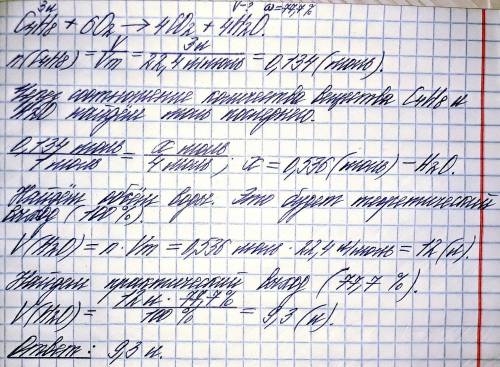 3л V-? ω=77,7%
C₄H₈ + 6O₂ → 4CO₂ + 4H₂O.
n(C₄H₈) = V/Vm = 3л/22,4 л/моль = 0,134 (моль).
Через соотношение количества вещества C₄H₈ и
H₂O найдем моль последнего.
0,134 моль/1 моль = x моль/4 моль; x = 0,536 (моль) – H₂O.
Найдём объём воды. Это будет теоретический
выход (100%).
V(H₂O) = n · Vm = 0,536 моль · 22,4 л/моль = 12 (л).
Найдем практический выход (77,7%).
V(H₂O) = 12 л · 77,7%/100% = 9,3 (л).
Ответ: 9,3 л.